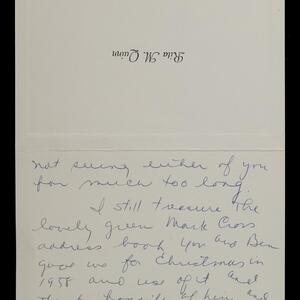 Rita M. Quinn
not seeing either of you
for much too long.
I still treasure the
lovely green Mark Cross
address book you and Ben
gave me for Christmas in
1958 and use it and